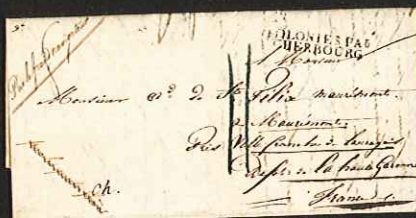 COLONIES PAR
CHERBOURG
Monsieur
Monsieur de St Felix maurémont
a Maurémont
Près Ville franche de
Dept de La haute Garonne
France
ch.